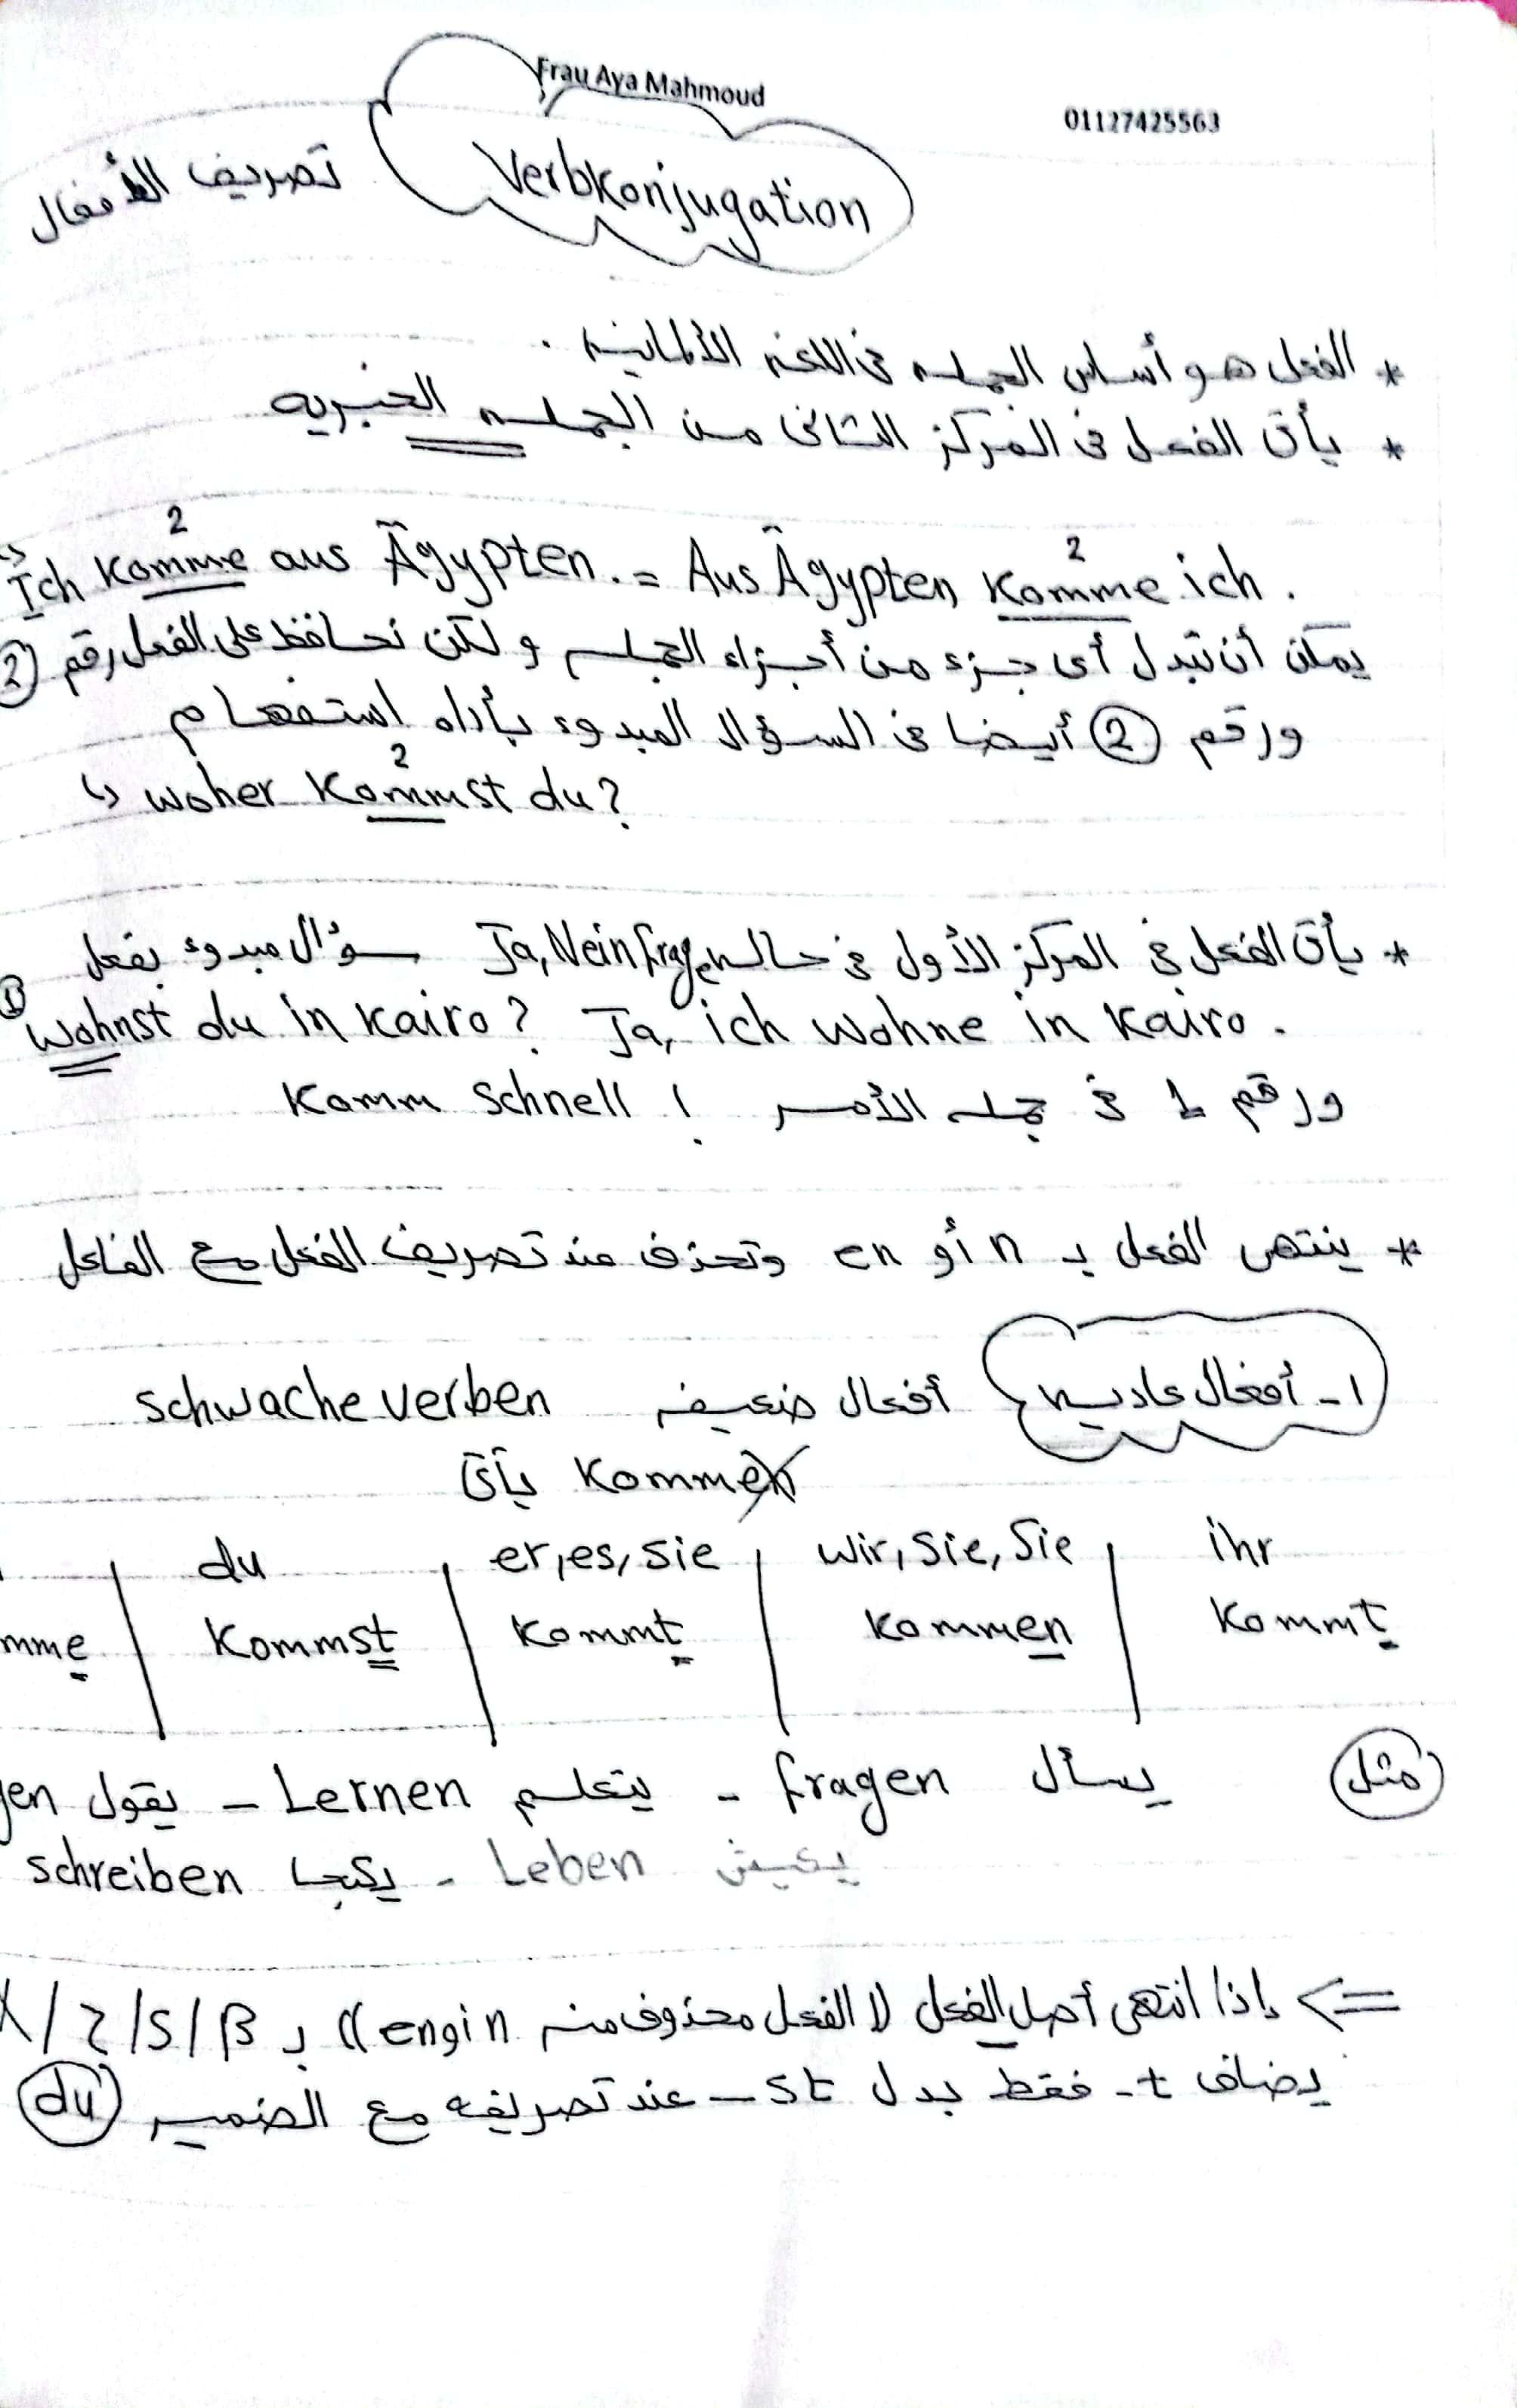 Frau Aya Mahmoud
01127425563
Verbkonjugation تصريف الأفعال
* الفعل هو أساس الجمله فى اللغه الألمانيه .
* يأتى الفعل فى المركز الثانى من الجمله الخبريه
2 2
↳ Ich Komme aus Ägypten. = Aus Ägypten Komme ich .
يمكن أن نبدل أى جزء من أجزاء الجمله و لكن نحافظ على الفعل رقم (2)
ورقم (2) أيضا فى السؤال المبدوء بأداه استفهام
2
↳ woher Kommst du?
* يأتى الفعل فى المركز الأول فى حاله Ja, Nein fragen سؤال مبدوء بفعل
(1) wohnst du in Kairo? Ja, ich wohne in Kairo .
ورقم 1 فى جمله الأمر Komm schnell !
* ينتهى الفعل بـ n أو en وتحذف عند تصريف الفعل مع الفاعل
١- أفعال عاديه أفعال ضعيفه schwache verben
Kommen يأتى
du er, es, sie wir, sie, Sie ihr
mme Kommst Kommt Kommen Kommt
(مثل) يسأل fragen - يتعلم Lernen - يقول gen
يعيش Leben - schreiben
=> إذا انتهى أصل الفعل (( الفعل محذوف منه n و en )) بـ ß / s / z /
يضاف t- فقط بدل st - عند تصريفه مع الضمير (du)